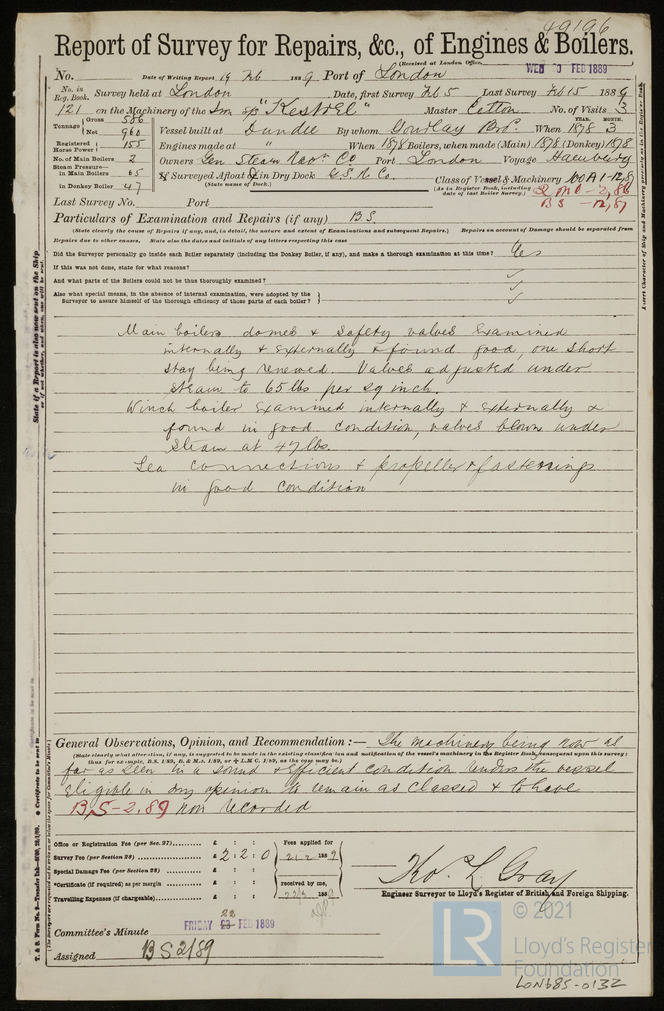 49196
Report of Survey for Repairs, &c., of Engines & Boilers.
(Received at London Office, WED 20 FEB 1889
No. Date of Writing Report 19 Feb 1889 Port of London
No. in Reg. Book. Survey held at London Date, first Survey Feb 5 Last Survey Feb 15 1889
121 on the Machinery of the Iron sp "Kestrel" Master Citton No. of Visits 3
Tonnage { Gross 586
Net 960
Registered Horse Power } 155
No. of Main Boilers 2
Steam Pressure—
in Main Boilers 65
in Donkey Boiler 47
Vessel built at Dundee By whom Gourlay Bros. When YEAR. 1878 MONTH. 3
Engines made at " When 1878 Boilers, when made (Main) 1878 (Donkey) 1878
Owners Gen Steam Navn Co Port London Voyage Hamburg
If Surveyed Afloat or in Dry Dock G.S.N. Co.
(State name of Dock.)
Class of Vessel & Machinery 100A1-12,87
(As in Register Book, including date of last Boiler Survey.)
BS -12,87
Last Survey No. Port
Particulars of Examination and Repairs (if any) B.S.
(State clearly the cause of Repairs if any, and, in detail, the nature and extent of Examinations and subsequent Repairs.) Repairs on account of Damage should be separated from
Repairs due to other causes. State also the dates and initials of any letters respecting this case
Did the Surveyor personally go inside each Boiler separately (including the Donkey Boiler, if any), and make a thorough examination at this time? Yes
If this was not done, state for what reasons? ✓
And what parts of the Boilers could not be thus thoroughly examined? ✓
Also what special means, in the absence of internal examination, were adopted by the
Surveyor to assure himself of the thorough efficiency of those parts of each boiler? } ✓
Main boilers domes & safety valves examined
internally & externally & found good, one short
stay being renewed. Valves adjusted under
steam to 65 lbs per sq inch.
Winch boiler examined internally & externally &
found in good condition, valves blown under
steam at 47 lbs.
Sea connections & propeller & fastenings
in good condition
General Observations, Opinion, and Recommendation:— The machinery being now as
(State clearly what alteration, if any, is suggested to be made in the existing classification and notification of the vessel's machinery in the Register Book, consequent upon this survey:
thus for example, B.S. 1/89, B. & M.s. 1/89, or ✠ L.M.C. 1/89, as the case may be.)
far as seen in a sound & efficient condition renders the vessel
eligible in my opinion to remain as classed & to have
B.S-2,89 now recorded
Office or Registration Fee (per Sec. 27) £ : :
Survey Fee (per Section 28) £ 2 : 2 : 0
Special Damage Fee (per Section 28) £ : :
*Certificate (if required) as per margin £ : :
Travelling Expenses (if chargeable) £ : :
Fees applied for
21/2 1889
received by me,
Tho. L. Gray
Engineer Surveyor to Lloyd's Register of British and Foreign Shipping.
Committee's Minute FRIDAY 22 FEB 1889
Assigned BS 2/89
© 2021
LR
Lloyd's Register
Foundation
LON685-0132